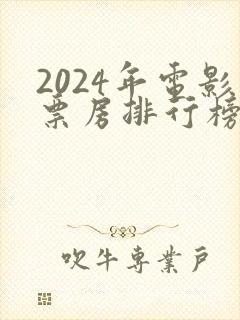 2024年电影
票房排行榜
吹牛專業戶